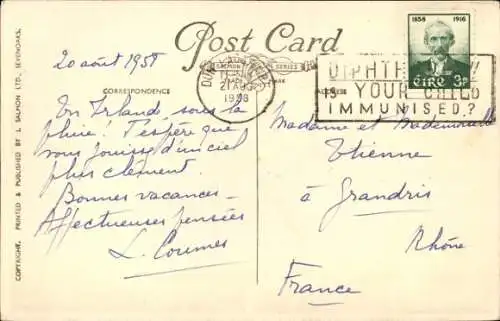 Post Card
SALMON SERIES
CORRESPONDENCE
ADDRESS
1858 1916
ÉIRE 3P
21 AUG
1958
DIPHTHERIA!
IS YOUR CHILD
IMMUNISED?
20 août 1958
En Irlande, sous la
pluie! J'espère que
vous jouissez d'un ciel
plus clément.
Bonnes vacances -
Affectueuses pensées
L. Coumes
Madame et Mademoiselle
Etienne
à Grandris
Rhône
France
COPYRIGHT. PRINTED & PUBLISHED BY J. SALMON LTD., SEVENOAKS.